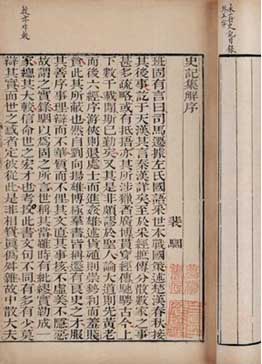 史記集解序
裴駰
班固有言曰司馬遷據左氏國語采世本戰國策述楚漢春秋接
其後事訖于天漢其言秦漢詳矣至於采經摭傳分散數家之事
甚多疏略或有抵捂亦其所涉獵者廣博貫穿經傳馳騁古今上
下數千載間斯已勤矣又其是非頗謬於聖人論大道則先黃老
而後六經序游俠則退處士而進姦雄述貨殖則崇勢利而羞賤
貧此其所蔽也然自劉向揚雄博極羣書皆稱遷有良史之才服
其善序事理辯而不華質而不俚其文直其事核不虛美不隱惡
故謂之實錄駰以為固之所言世稱其當雖時有紕繆實勒成一
家總其大較信命世之宏才也考較此書文句不同有多有少莫
辯其實而世之惑者定彼從此是非相貿真偽舛雜故中散大夫